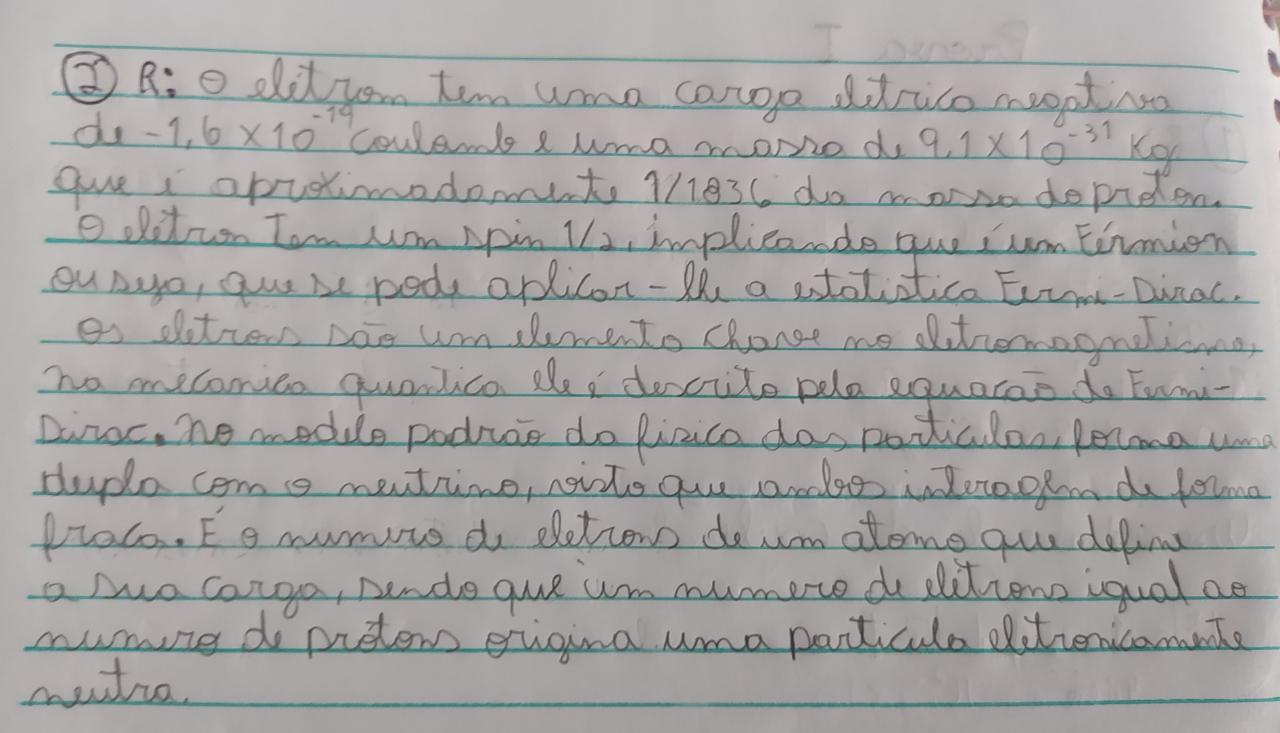 ② R: O elétrom tem uma carga eletrica negativa
de -1,6 x 10⁻¹⁹ Coulomb e uma massa de 9,1 x 10⁻³¹ Kg
que é aproximadamente 1/1836 da massa do próton.
O elétron Tem um spin 1/2, implicando que é um Férmion
ou seja, que se pode aplicar-lhe a estatistica Fermi-Dirac.
Os eletrons são um elemento chave no eletromagnetismo,
na mecanica quantica ele é descrito pela equacão de Fermi-
Dirac. No modelo padrão da fisica das particulas, forma uma
dupla com o neutrino, visto que ambos interagem de forma
fraca. É o numero de eletrons de um atomo que define
a sua carga, sendo que um numero de elétrons igual ao
numero de prótons origina uma particula eletronicamente
neutra.